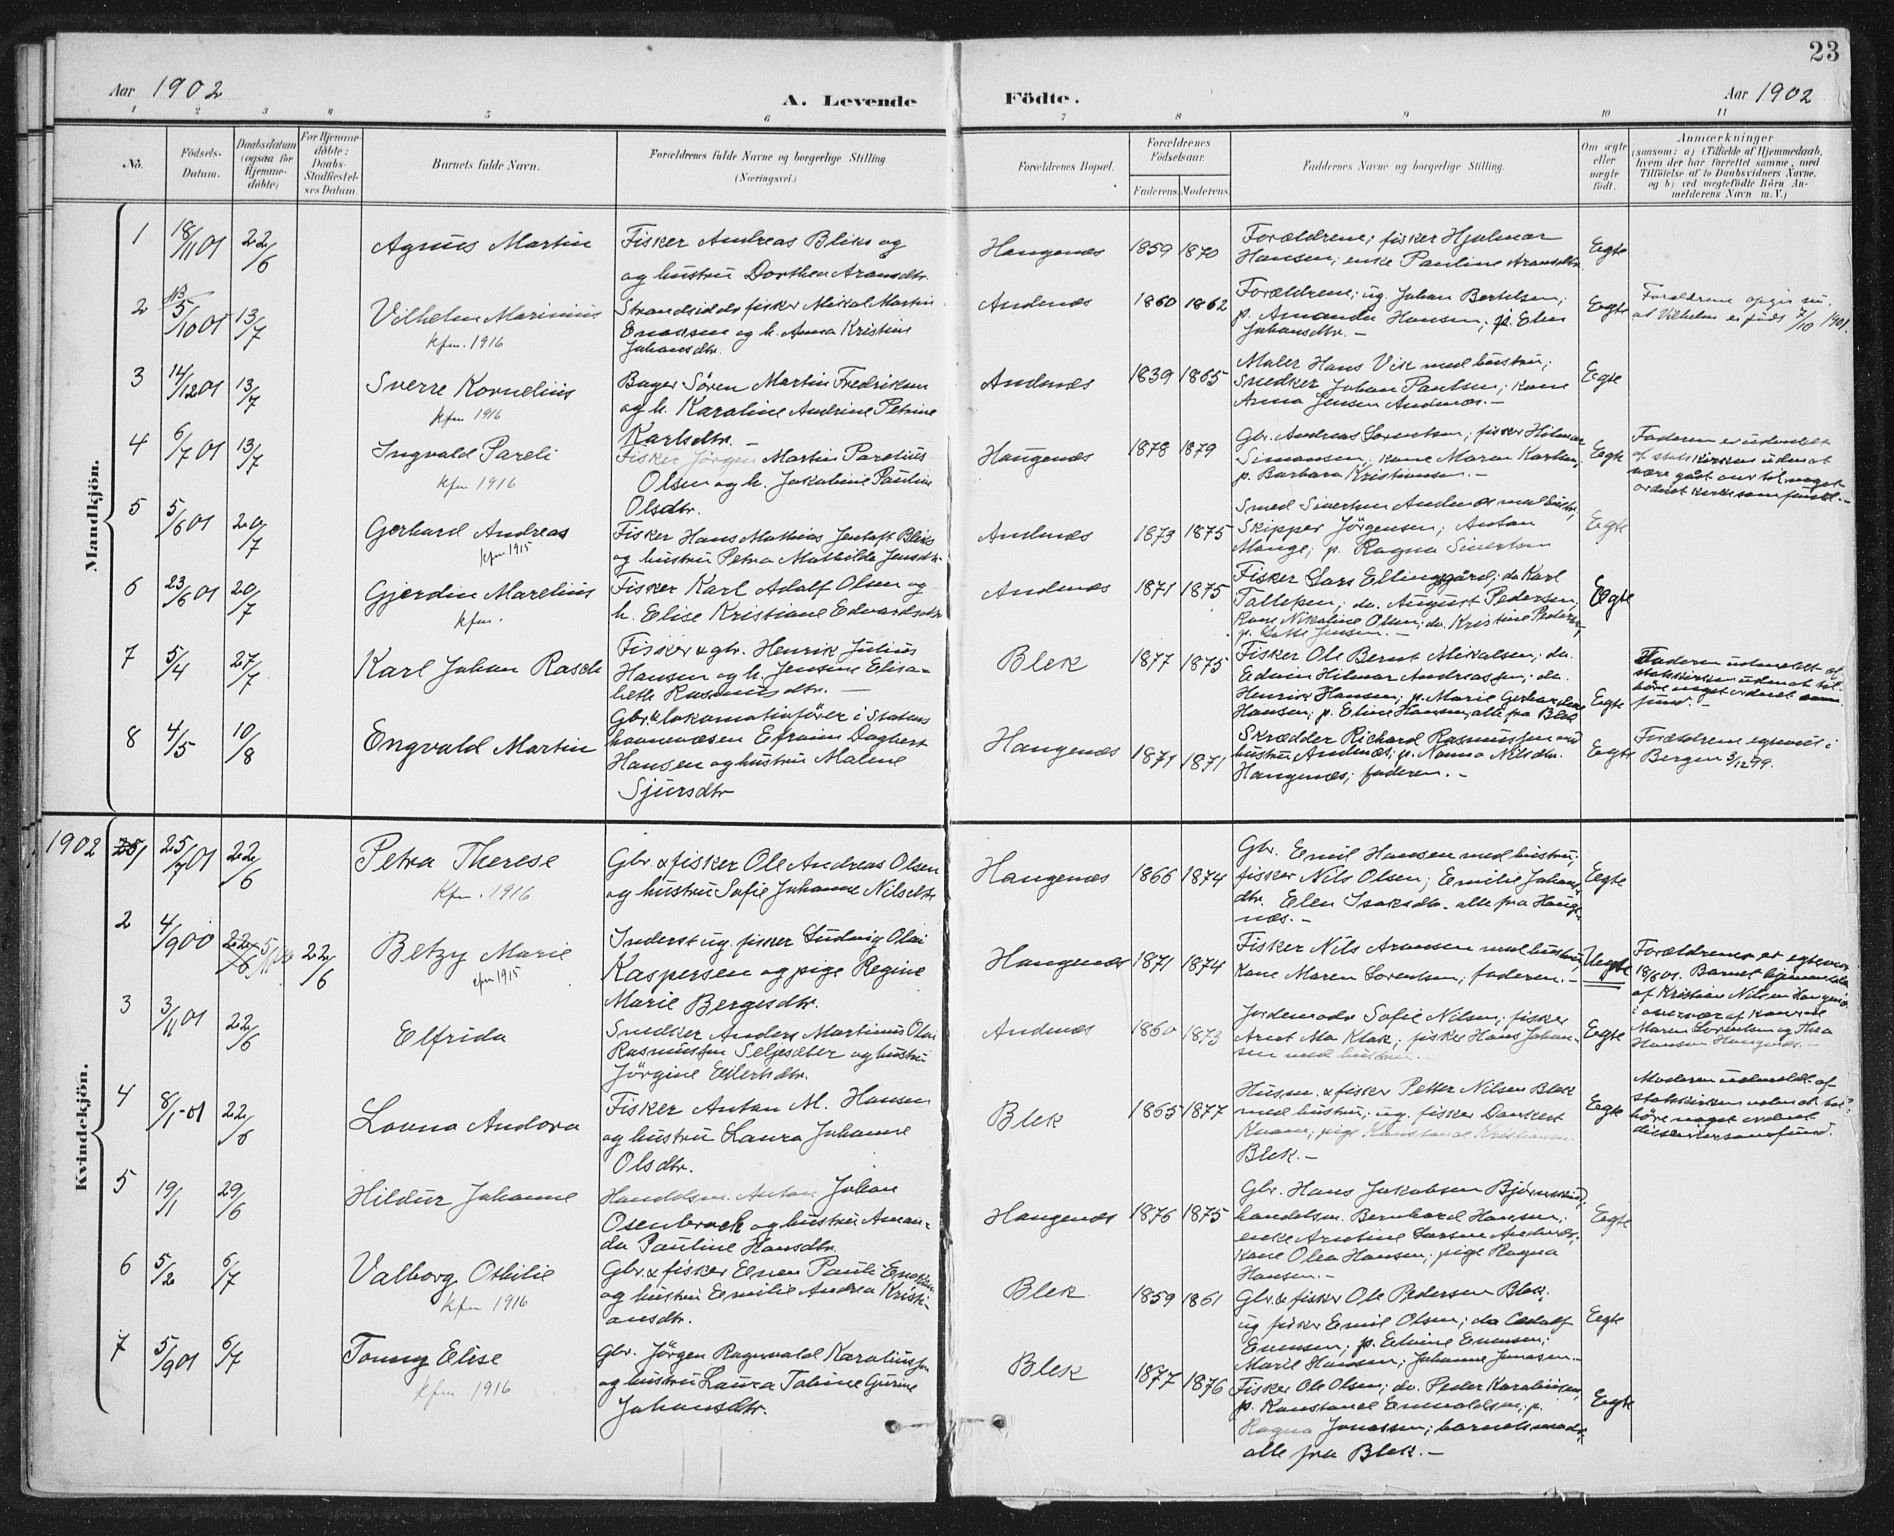 23
Aar 1902
A. Levende Födte.
Aar 1902
1 2 3 4 5 6 7 8 9 10 11
No.
Födsels-Datum.
Daabsdatum (ogsaa for Hjemme-döbte)
For Hjemme-döbte: Daabs-Stadfæstel-ses Datum.
Barnets fulde Navn.
Forældrenes fulde Navne og borgerlige Stilling. (Næringsvei.)
Forældrenes Bopæl.
Forældrenes Födselsaar.
Faderens. Moderens.
Faddernes Navne og borgerlige Stilling.
Om ægte eller uægte födt.
Anmærkninger
(saasom: a) i Tilfælde af Hjemmedaab,
hvem der har forrettet samme, med
Tilföielse af to Daabsvidners Navne.
og b) ved uægtefödte Börn An-
melderens Navn m. V.)
Mandkjön.
1 18/11 01 22/6 Agnus Martin
Fisker Andreas Bliks og
og hustru Dorthea Aronsdtr.
Haugenæs 1859 1870
Forældrene; fisker Hjalmar
Hansen; enke Pauline Aronsdtr.
Egte
2 5/10 01 13/7 Vilhelm Marinius
kfm. 1916
Strandsidder fisker Mikal Martin
Enoksen og h. Anna Kristine
Johansdtr.
Andenæs 1860 1862
Forældrene; ug. Johan Bertelsen;
p. Amanda Hansen; p. Elen
Johansdtr. —
Egte
Forældrene opgir nu,
at Vilhelm er föds 7/10 1901.
3 14/12 01 13/7 Sverre Kornelius
kfm 1916
Bager Sören Martin Fredriksen
og h. Karoline Andrine Petrine
Karlsdtr. —
Andenæs 1839 1865
Maler Hans Vik med hustru;
Snedker Johan Paulsen; kone
Anna Jensen Andenæs. —
Egte
4 6/7 01 13/7 Ingvald Pareli
kfm 1916
Fisker Jörgen Martin Parelius
Olsen og h. Jakobine Pauline
Olsdtr.
Haugenæs 1878 1879
Gbr. Andreas Lorentsen; fisker Hilmar
Simonsen, kone Maren Karlsen,
p. Barbara Kristiansen. —
Egte
Faderen er udmeldt
af statskirken uden at
være gået over til noget
ordnet kirkesamfund. —
5 5/6 01 20/7 Gerhard Andreas
kfm 1915
Fisker Hans Mathias Jentoft Bliks
og hustru Petra Mathilda Jensdtr.
Andenæs 1873 1875
Smed Sivertsen Andenæs med hustru,
Skipper Jörgensen; Anton
Monge; p. Ragna Sivertsen
Egte
6 23/6 01 20/7 Gjerdin Marelius
kfm.
Fisker Karl Adolf Olsen og
h. Elise Kristiane Edvardsdtr.
Andenæs 1871 1875
Fisker Lars Ellingsgård; do Karl
Talleksen; do. August Pedersen,
Kone Nikoline Olsen; do. Kristine Pedersen,
p. Lotte Jensen. —
Egte
7 5/4 27/7 Karl Johan Rasch
Fisker & gbr. Henrik Julius
Hansen og h. Jensine Elisa-
beth Rasmusdtr. —
Blek 1877 1875
Fisker Ole Bernt Mikalsen; do.
Edvin Hilmar Andreassen; do.
Henrik Hansen; p. Marie Gerhardine
Hansen; p. Eline Hansen, alle fra Blek
Egte
Faderen udmeldt af
statskirken uden at til-
höre noget ordnet sam-
fund. —
8 4/5 10/8 Engvald Martin
Gbr. & lokomotivförer i Statens
havnevæsen Efraim Dagbert
Hansen og hustru Malene
Sjursdtr
Haugenæs 1871 1871
Skrædder Richard Rasmussen med
hustru Andenæs; p. Nanna Nilsdtr.
Haugenæs; faderen. —
Egte
Forældrene egteviet i
Bergen 3/12 99.
Kvindekjön.
1902 1 25/7 01 22/6 Petra Therese
Kfm. 1916
Gbr. & fisker Ole Andreas Olsen
og hustru Sofie Johanne Nilsdtr
Haugenæs 1866 1874
Gbr. Emil Hansen med hustru;
fisker Nils Olsen; Emilie Johans-
dtr. Elen Isaksdtr. alle fra Hauge-
næs. —
Egte
2 4/9 00 22/6 22/6 Betzy Marie
kfm 1915
Inderst ug. fisker Ludvig Olai
Kaspersen og pige Regine
Marie Bergesdtr.
Haugenæs 1871 1874
Fisker Nils Aronsen med hustru,
kone Maren Lorentsen; faderen. —
Uegte
Forældrene er egteviet
18/6 01. Barnet hjemmedöbt
af Kristian Nilsen Haugenæs
i overvær af konerne
Maren Lorentsen og Thea
Hansen Haugenæs. —
3 3/11 01 22/6 Elfrida
Snedker Anders Martinus Olai
Rasmussen Seljesæter og hustru
Jörgine Eilertsdtr.
Andenæs 1860 1873
Jordemoder Sofie Nilsen; fisker
Arnt Mo Klak; fisker Hans Johan-
sen med hustru. —
Egte
4 8/1-01 22/6 Lovna Andora
Fisker Anton M. Hansen
og hustru Laura Johanne
Olsdtr.
Blek 1865 1877
Husm. & fisker Petter Nilsen Blek
med hustru; ug. fisker Dankert
pige Konstanse Kristiansen
Blek. —
Egte
Moderen udmeldt af
statskirken uden at til-
höre noget ordnet
dissentersamfund.
5 19/1 29/6 Hildur Johanne
Handelsm. Anton Johan
Osenbrock og hustru Aman-
da Pauline Hansdtr.
Haugenæs 1876 1875
Gbr. Hans Jakobsen Björnskind,
handelsm. Bernhard Hansen;
enke Arntine Larsen Andenæs,
kone Olea Hansen, pige Ragna
Hansen. —
Egte
6 5/2 6/7 Valborg Othilie
kfm 1916
Gbr. & fisker Enen Pauli Enoksen
og hustru Emilie Andrea Kristi-
ansdtr.
Blek 1859 1861
Gbr. & fisker Ole Pedersen Blek;
ug fisker Emil Olsen; do Adolf
Enensen; p. Elvine Enensen;
Marie Hansen; Johanne Jonasen. —
Egte
7 5/9 01 6/7 Tonny Elise
kfm 1916
Gbr. Jörgen Ragnvald Karoliussen
og hustru Laura Tobine Gurine
Johansdtr.
Blek 1877 1876
Fisker Ole Olsen; do. Peder Karoliussen,
p. Konstanse Enevoldsen; p.
Ragna Jonassen; barnets moder,
alle fra Blek. —
Egte